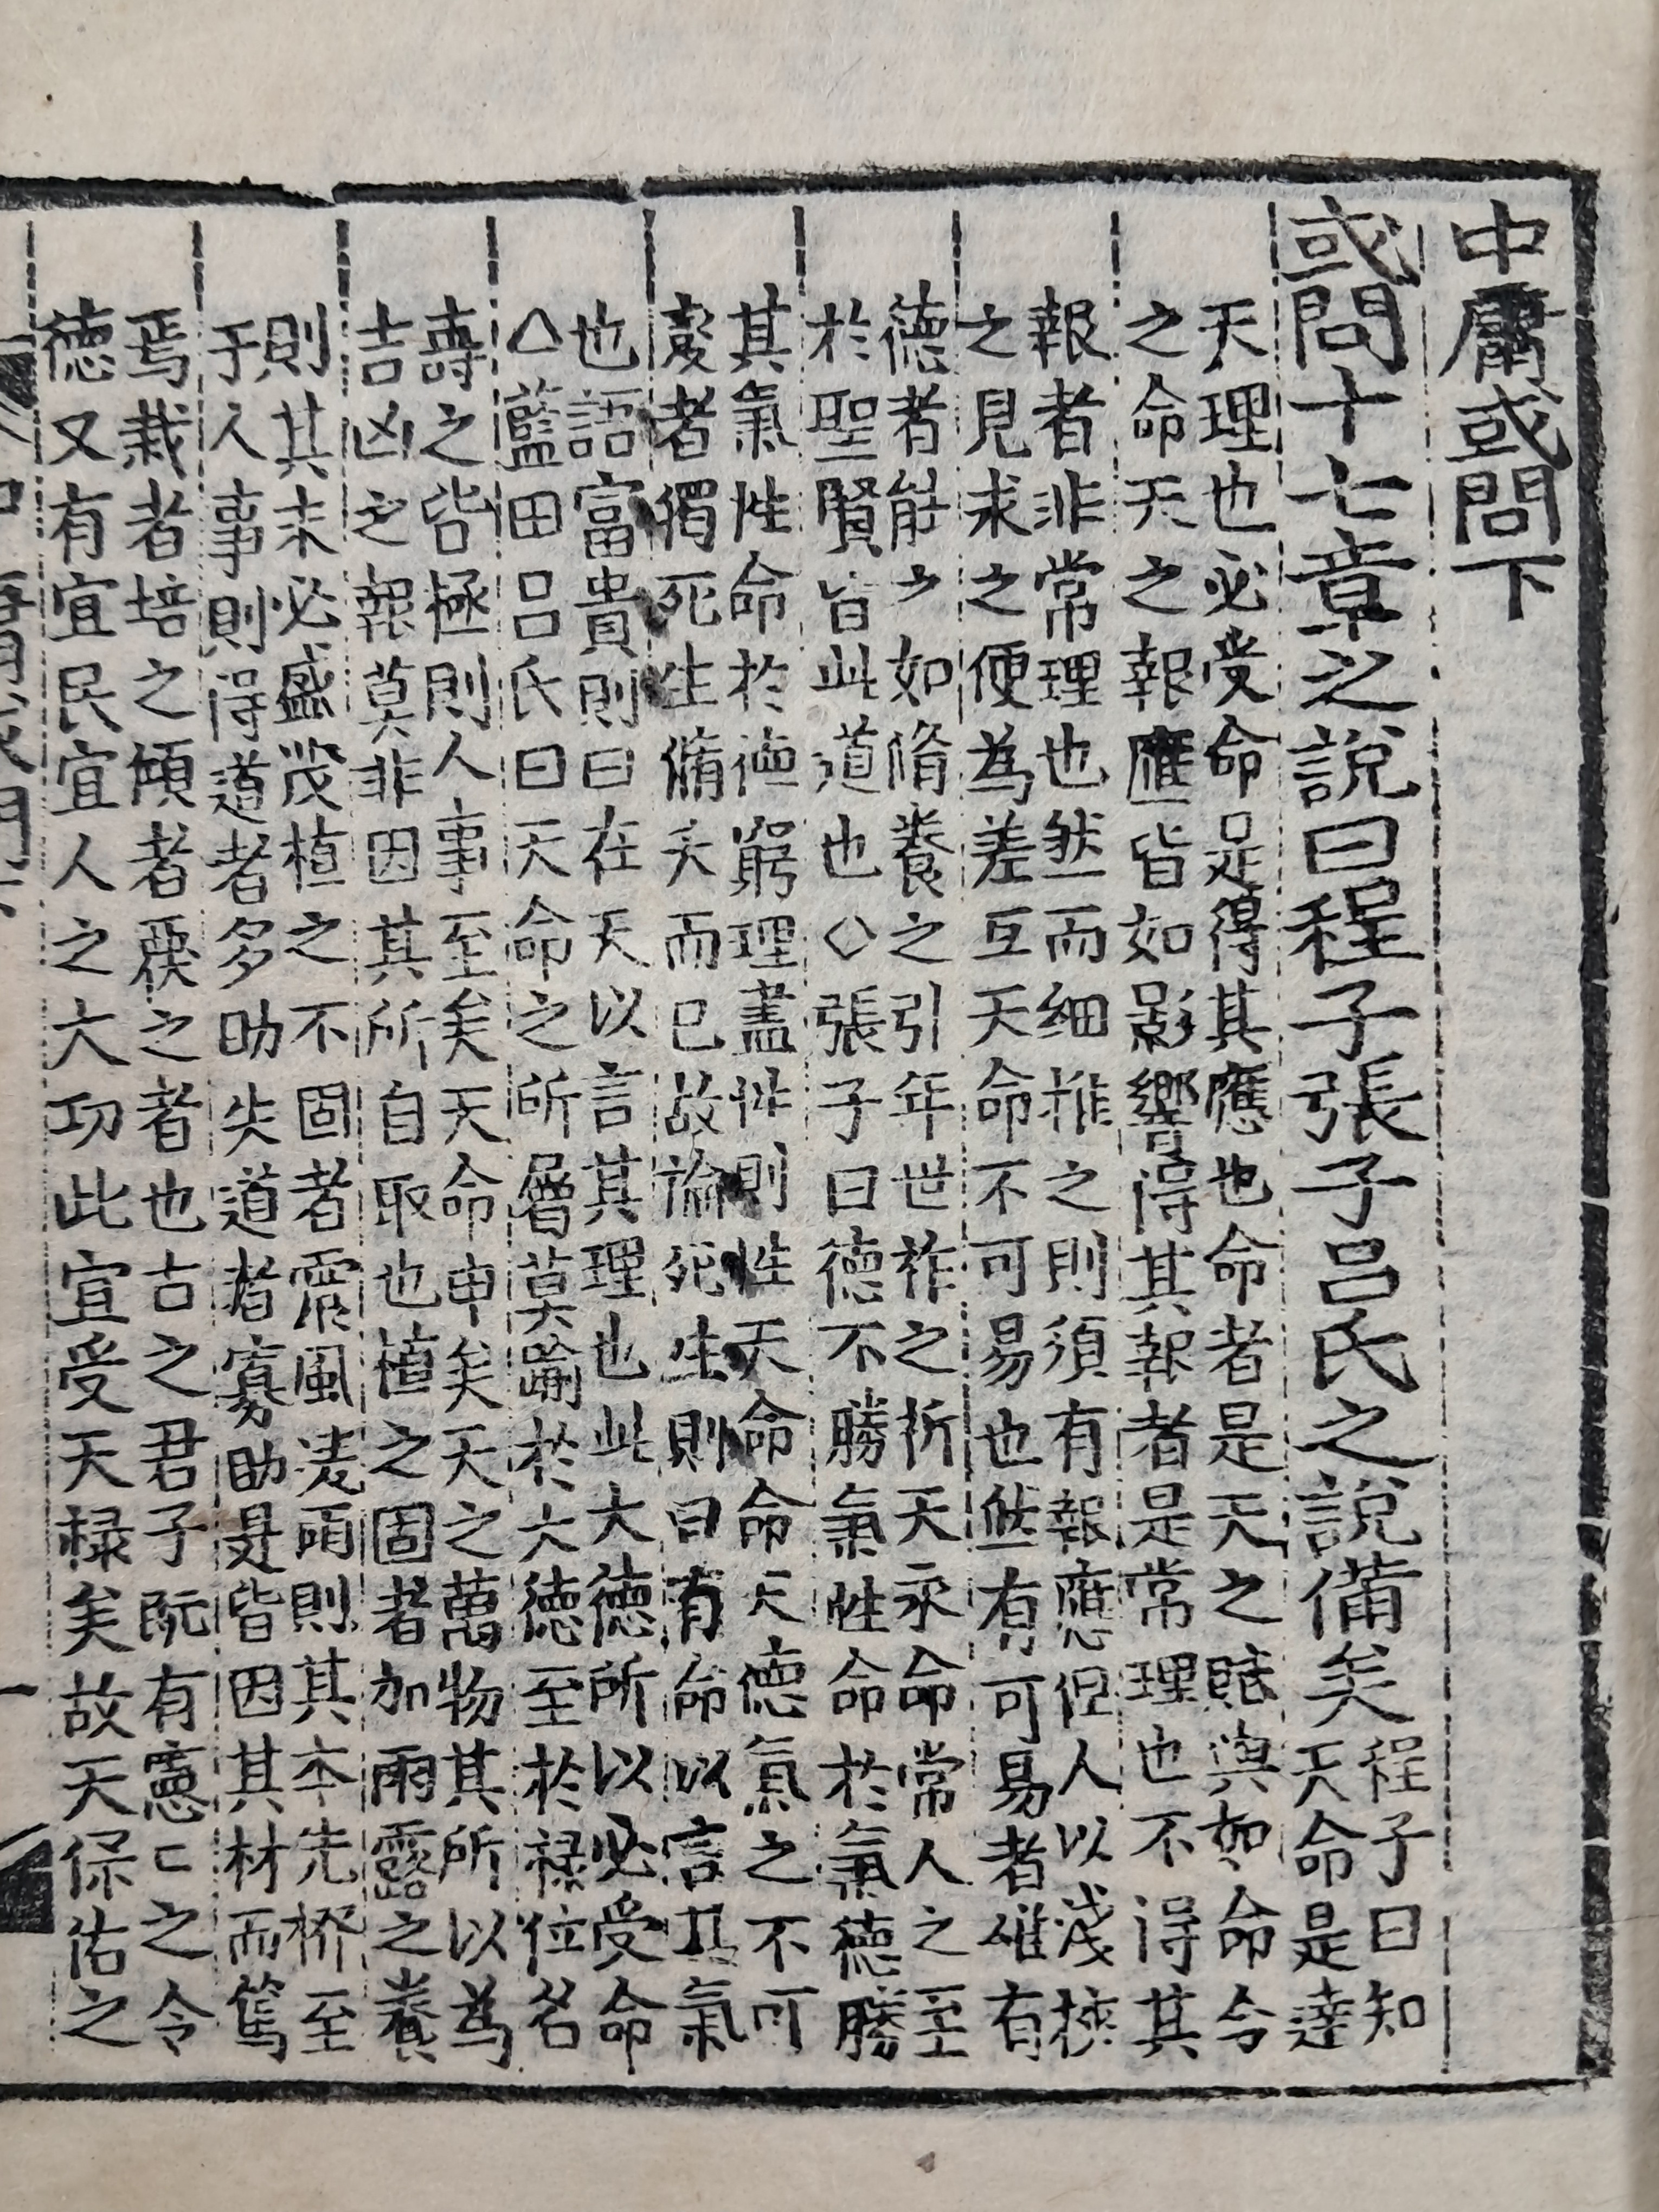 中庸或問下
或問十七章之說曰程子張子呂氏之說備矣
程子曰知
天命是達
天理也必受命是得其應也命者是天之賦與如命令
之命天之報應皆如影響得其報者是常理也不得其
報者非常理也然而細推之則須有報應但人以淺狹
之見求之便為差互天命不可易也然有可易者惟有
德者能之如脩養之引年世祚之祈天永命常人之至
於聖賢皆此道也○張子曰德不勝氣性命於氣德勝
其氣性命於德窮理盡性則性天命命天德氣之不可
變者獨死生脩夭而已故論死生則曰有命以言其氣
也語富貴則曰在天以言其理也此大德所以必受命
△藍田呂氏曰天命之所屬莫踰於大德至於祿位名
壽之皆極則人事至矣天命申矣天之萬物其所以為
吉凶之報莫非因其所自取也植之固者加雨露之養
則其末必盛茂植之不固者震風凌雨則其本先撥至
于人事則得道者多助失道者寡助是皆因其材而篤
焉栽者培之傾者覆之者也古之君子既有憲憲之令
德又有宜民宜人之大功此宜受天祿矣故天保佑之